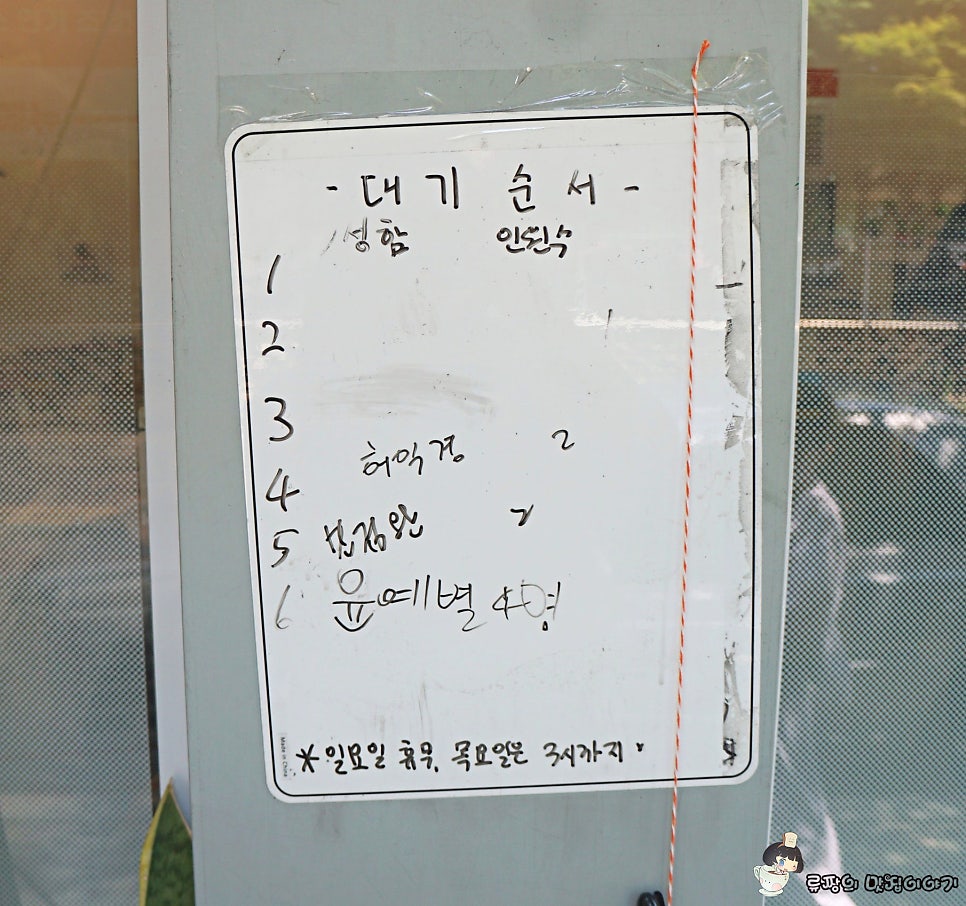 - 대 기 순 서 -
성함 인원수
1
2
3
허익경 2
4
5 2
6 윤예별 4명
* 일요일 휴무, 목요일은 3시까지.
Made in China
류짱의 맛집이야기